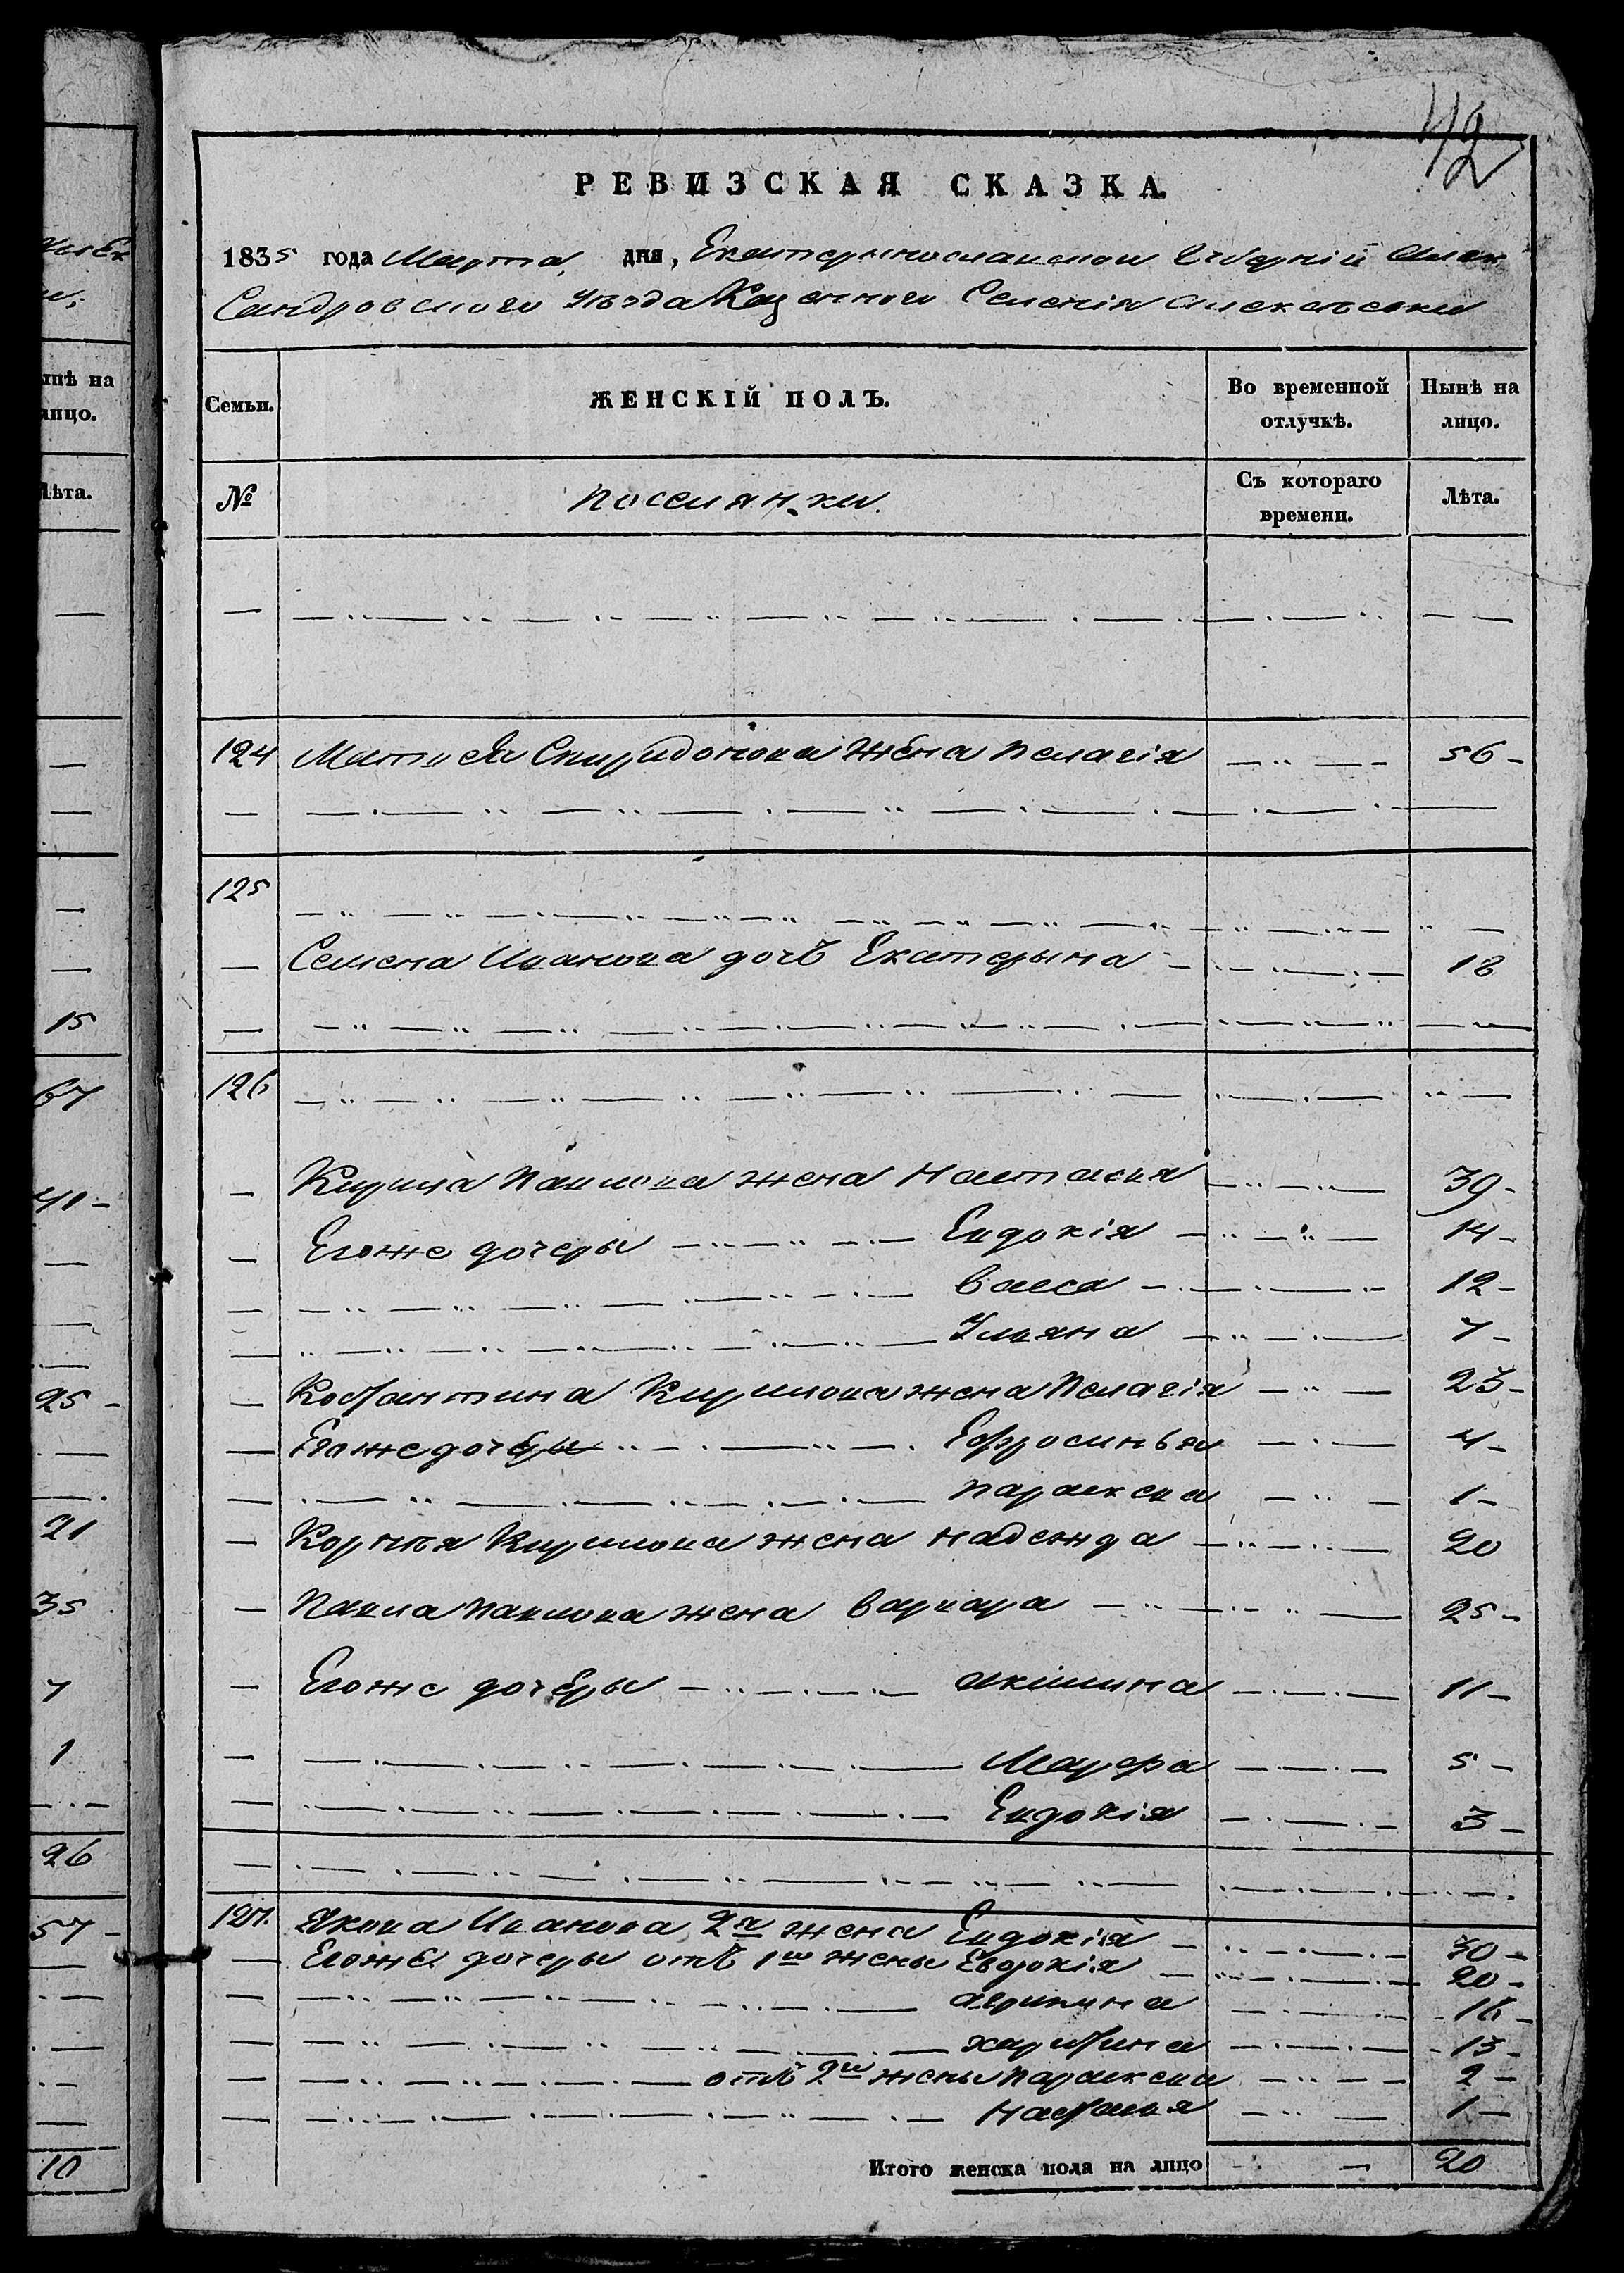 42
РЕВИЗСКАЯ СКАЗКА.
1835 года Марта дня, Екатеринославской Губерніи Алек
сандровскаго уѣзда Казенного Селенія Алексѣевки
Семьи. ЖЕНСКІЙ ПОЛЪ. Во временной отлучкѣ. Нынѣ на лицо.
№ поселянки. Съ котораго времени. Лѣта.
124 Матвея Спиридонова жена Пелагія 56
125
Семена Иванова дочь Екатерына 18
126
Кирила Павлова жена Настасия 39
Егоже дочеры Евдокія 14
Васса 12
Ульяна 7
Костантина Кирилова жена Пелагія 23
Егоже дочеры Ефросинья 4
Парасксва 1
Корнѣя Кирилова жена Надежда 20
Павла Павлова жена Варвара 25
Егоже дочеры Акілина 11
Марфа 5
Евдокія 3
127. Якова Иванова 2я жена Евдокія 30
Егоже дочеры отъ 1ш жены Евдокія 20
Агрипина 16
Харитина 13
отъ 2ш жены Парасксва 2
Настасия 1
Итого женска пола на лицо 20
нынѣ на
лицо.
Лѣта.
15
67
41
25
21
35
7
1
26
57
10